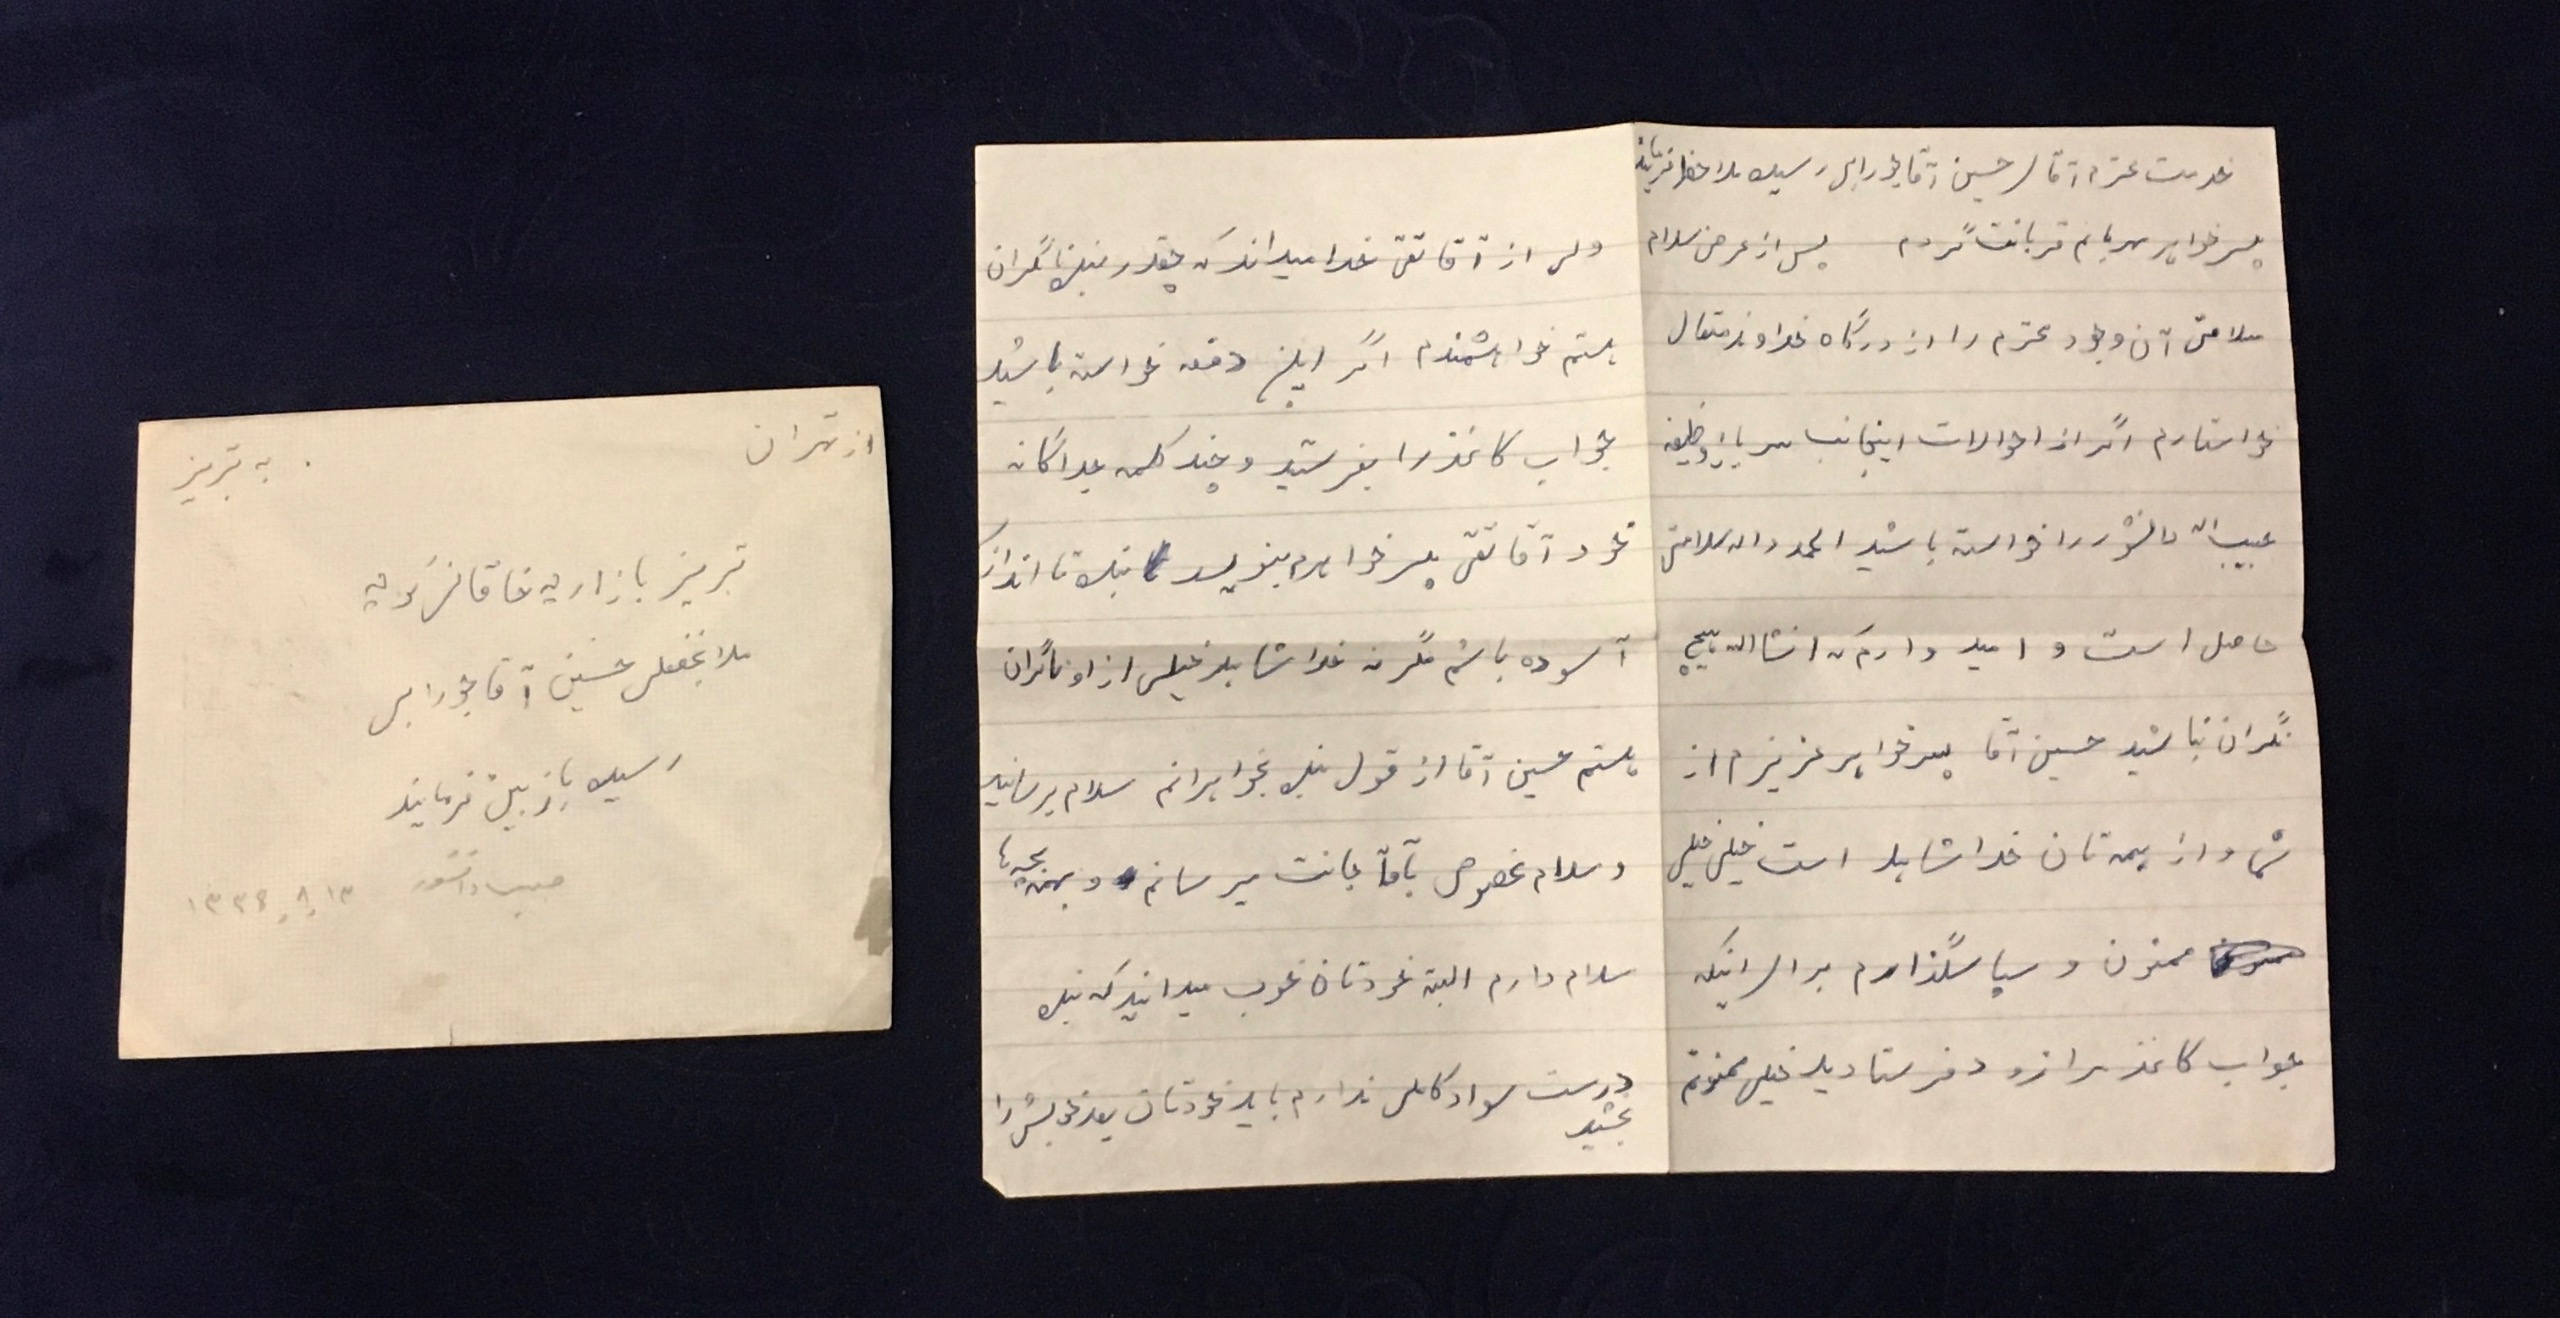 از تهران
به تبریز
تبریز بازارچه
ملا نجفعلی حسین آقا جورابی
رسیده بازبین فرمایند
حبیب دانشور ۱۳ ر ۸ ر ۱۳۳۶
خدمت محترم آقای حسین آقا جورابی رسیده ملاحظه فرمایند
پسر خواهر مهربانم قربانت گردم پس از عرض سلام
سلامتی آن وجود محترم را از درگاه خداوند متعال
خواستارم اگر از احوالات اینجانب سرباز وظیفه
حبیب اله دانشور را خواسته باشید الحمدواله سلامتی
حاصل است و امید وارم که انشااله هیچ
نگران نباشید حسین آقا پسر خواهر عزیزم از
شما و از همه تان خدا شاهد است خیلی خیلی
ممنون و سپاسگذارم برای اینکه
جواب کاغذ مرا زود فرستادید خیلی ممنونم
ولی از آقا تقی خدا میداند که چقدر بنده نگران
هستم خواهشمندم اگر این دفعه خواسته باشید
جواب کاغذ را بفرستید و چند کلمه جداگانه
خود آقا تقی پسر خواهرم بنویسد بنده تا اندازه
آسوده باشم مگر نه خدا شاهد خیلی از او نگران
هستم حسین آقا از قول بنده بخواهرانم سلام برسانید
و سلام مخصوص بآقا جانت میرسانم و بهمه بچه ها
سلام دارم البته خودتان خوب میدانید که بنده
درست سواد کاملی ندارم باید خودتان را
بخشید